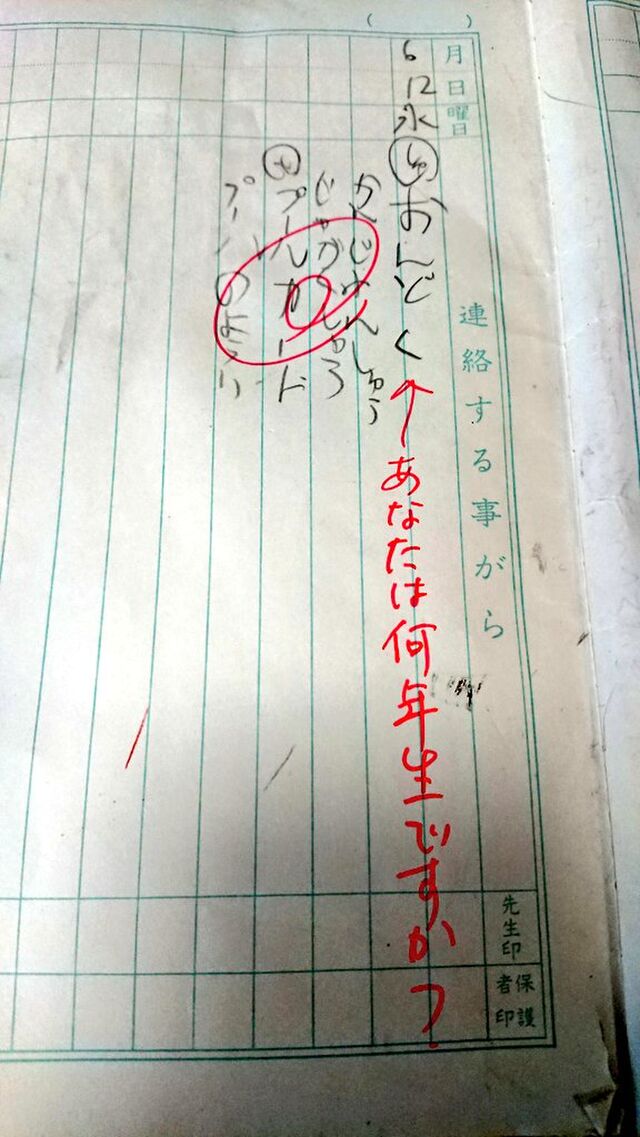 月日曜日 連絡する事がら 先生印 保護者印
6 12 水 しゅ おんどく ↑あなたは何年生ですか?
かんじれんしゅう
も プールカード
プールのようい